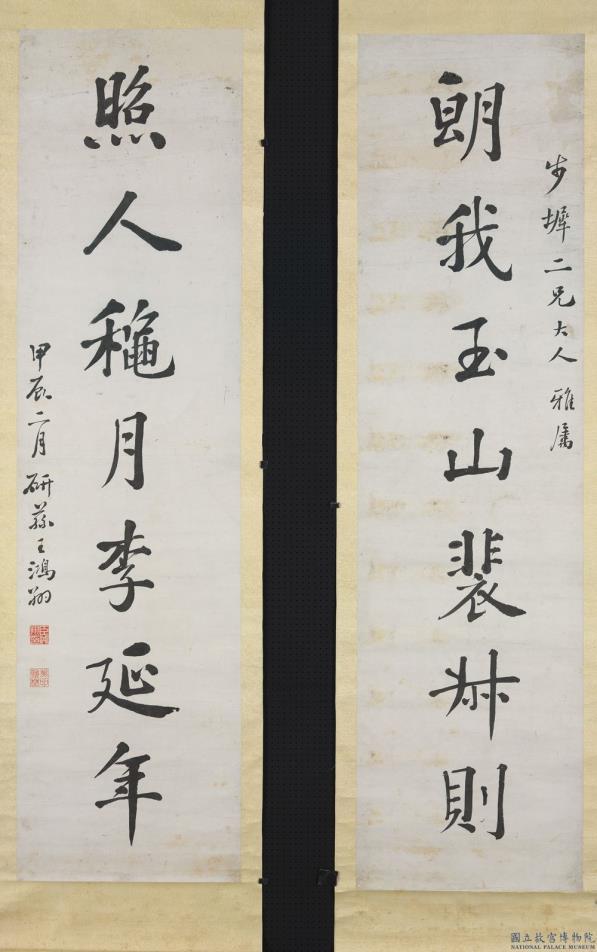 步墀二兄大人 雅屬
朗我玉山裴叔則
照人穐月李延年
甲辰二月 研蓀王鴻翔
國立故宮博物院
NATIONAL PALACE MUSEUM